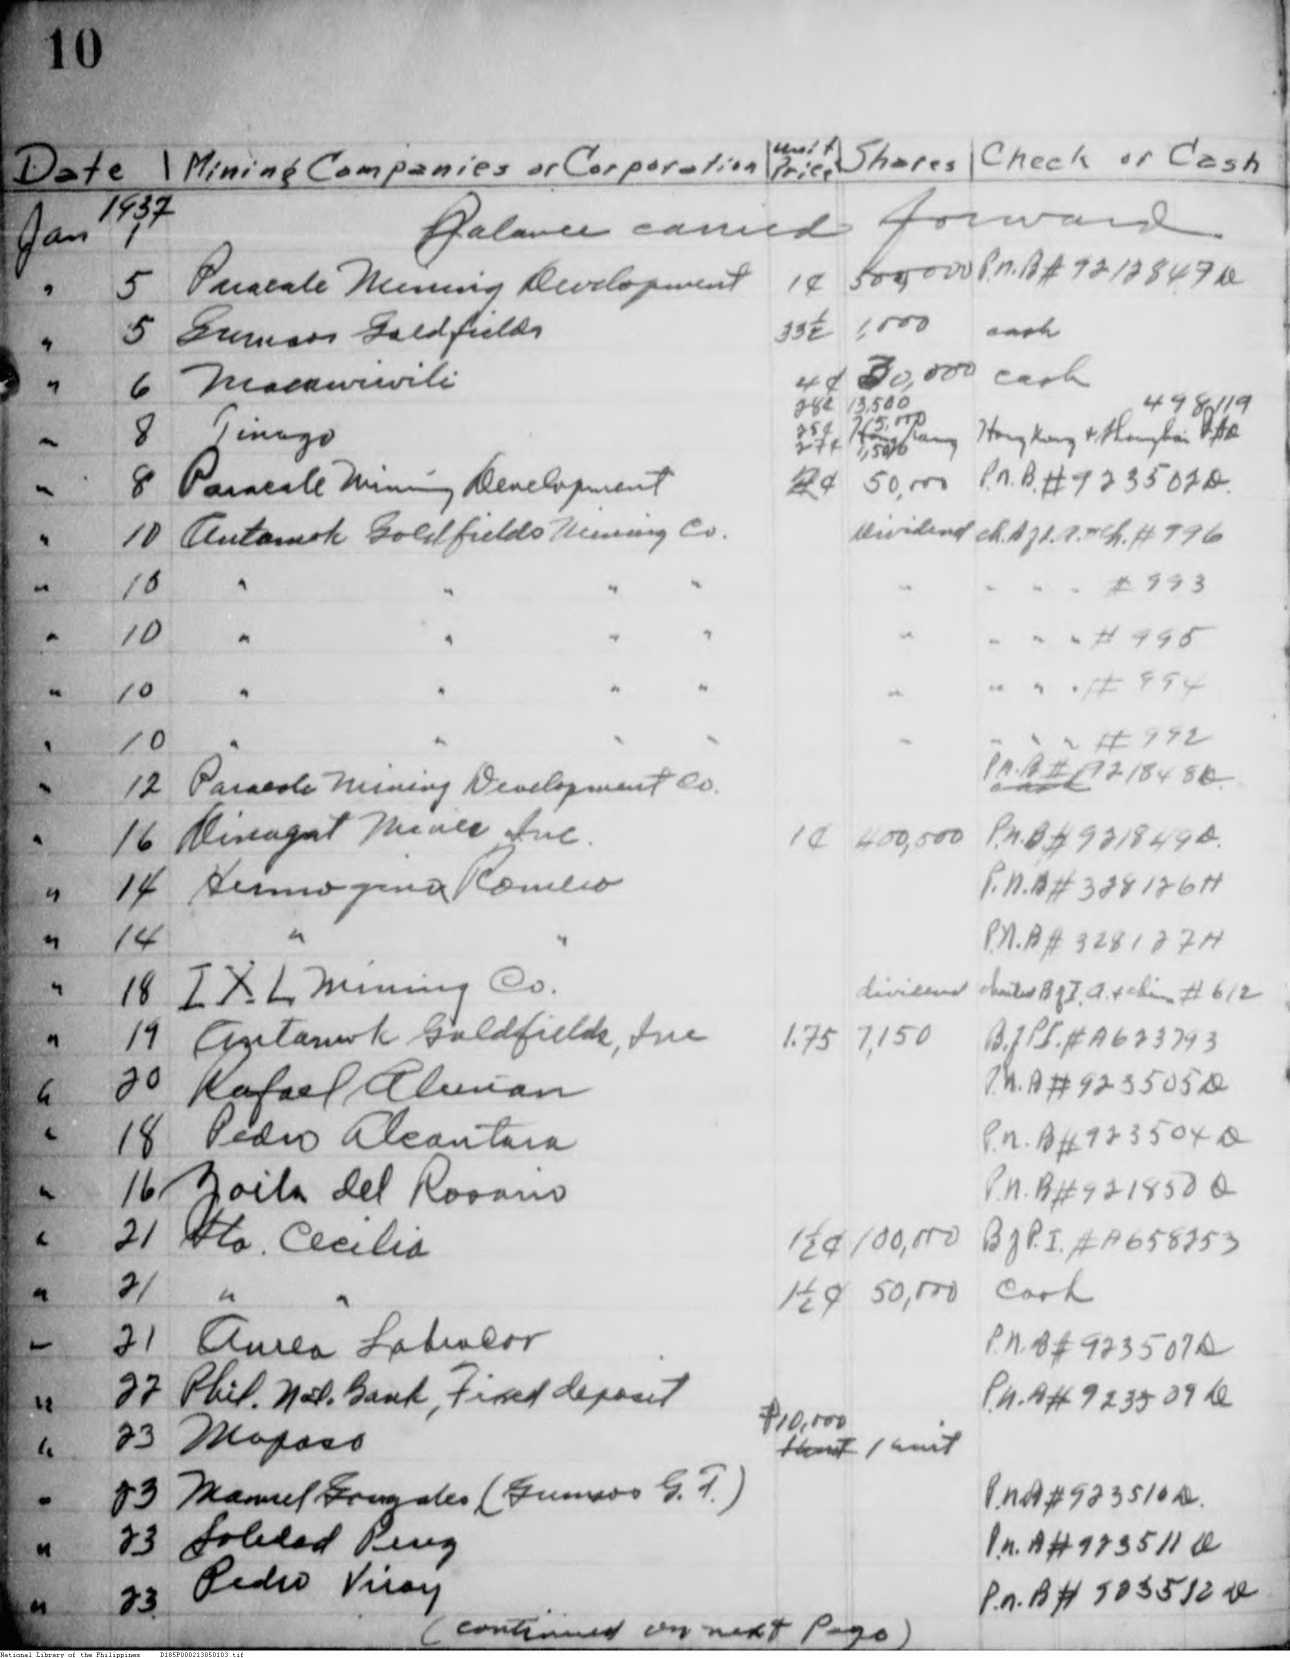 10
Date | Mining Companies or Corporation | Unit Price | Shares | Check or Cash
1937
Jan 1 Balance carried forward
" 5 Paracale Mining Development 1¢ 500,000 P.N.B # 921847 D
" 5 Gumaos Goldfields 33½ 1,000 cash
" 6 Macawiwili 4¢ 30,000 cash
28¢ 13,500 498119
" 8 Tinago 25¢ 15,000 Hongkong + Shanghai
27¢ 1,500
" 8 Paracale Mining Development ¢ 50,000 P.N.B. # 923502 D.
" 10 Antamok Goldfields Mining Co. Dividend ch. # 996
" 10 " " " " " " " " # 993
" 10 " " " " " " " " # 995
" 10 " " " " " " " " # 994
" 10 " " " " " " " " # 992
" 12 Paracale Mining Development Co. P.N.B # 921848 D.
" 16 Dinagat Mines Inc. 1¢ 400,000 P.N.B # 921849 D.
" 14 Hermogina Romero P.N.B # 328126 H
" 14 " " P.N.B # 328127 H
" 18 I X L Mining Co. dividend # 612
" 19 Antamok Goldfields, Inc 1.75 7,150 B of P.I. # A623793
" 20 Rafael Alunan P.N.B # 923505 D
" 18 Pedro Alcantara P.N.B # 923504 D
" 16 Zoila del Rosario P.N.B # 921850 D
" 21 Sta. Cecilia 1½¢ 100,000 B of P.I. # A658253
" 21 " " 1½¢ 50,000 Cash
" 21 Aurea Labrador P.N.B # 923507 D
" 22 Phil. Nat. Bank, Fixed deposit P.N.B # 923509 D
₱10,000
" 23 Mapaso 1 unit
" 23 Manuel Gonzales (Gumaos G. F.) P.N.B # 923510 D.
" 23 Soledad Perez P.N.B # 923511 D
" 23 Pedro Viray P.N.B # 923512 D
(continued on next Page)
National Library of the Philippines D185P000213050103.tif